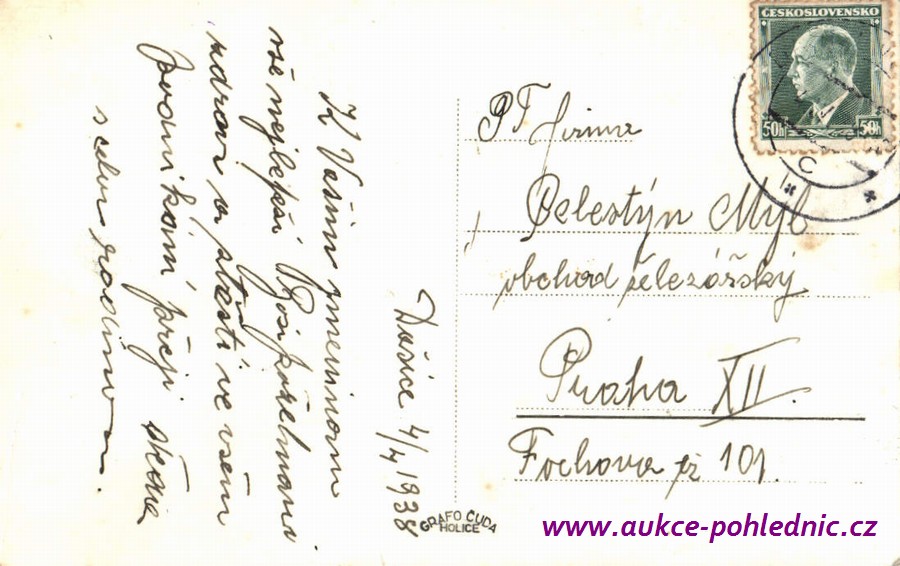 K Vašim jmeninám
vše nejlepší
zdraví a štěstí ve všem
podnikání přeji
s celou rodinou.
Dašice 4/4 1938
GRAFO ČUDA
HOLICE
ČESKOSLOVENSKO
50h 50h
PT firma
Celestýn Mýl
obchod železářský
Praha XII.
Fochova čp 101
www.aukce-pohlednic.cz